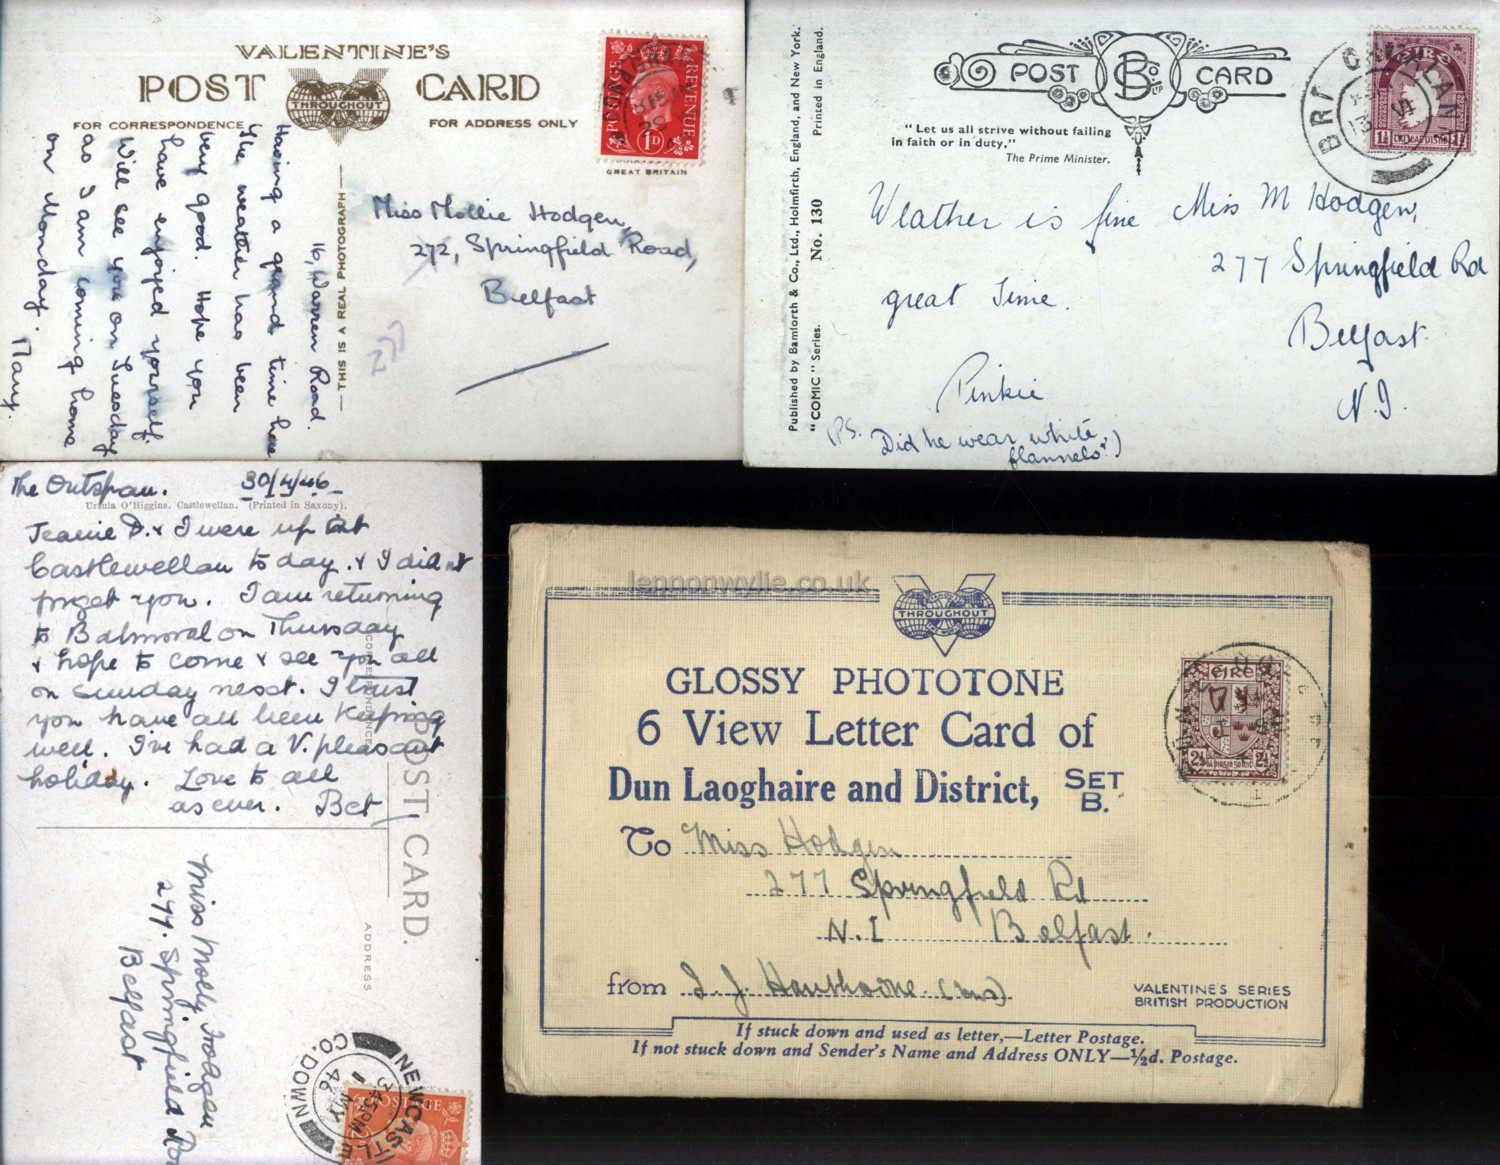 VALENTINE'S
POST CARD
THROUGHOUT
FOR CORRESPONDENCE
FOR ADDRESS ONLY
POSTAGE REVENUE
1D
GREAT BRITAIN
THIS IS A REAL PHOTOGRAPH
16, Warren Road.
Having a grand time here
The weather has been
very good. Hope you
have enjoyed yourself.
Will see you on Tuesday
as I am coming home
on Monday.
Mary.
Miss Mollie Hodgen,
272, Springfield Road,
Belfast
277
POST CARD
B Co. LTD
"Let us all strive without failing
in faith or in duty."
The Prime Minister.
Published by Bamforth & Co., Ltd., Holmfirth, England, and New York.
"COMIC" Series. No. 130 Printed in England.
ÉIRE
Weather is fine
great time.
Pinkie
(P.S. Did he wear white
flannels?)
Miss M Hodgen,
277 Springfield Rd
Belfast.
N.I.
The Outspan. 30/4/46
Ursula O'Higgins, Castlewellan. (Printed in Saxony).
Jeanie D. & I were up at
Castlewellan to day. & I didnt
forget you. I am returning
to Balmoral on Thursday
& hope to come & see you all
on Sunday next. I trust
you have all been keeping
well. I've had a V. pleasant
holiday. Love to all
as ever. Bet
CORRESPONDENCE
POST CARD.
ADDRESS
Miss Molly Hodgen
277. Springfield Roa
Belfast
NEWCASTLE
CO. DOWN
3 45 PM
1 MY
46
POSTAGE
lennonwylie.co.uk
THROUGHOUT
GLOSSY PHOTOTONE
6 View Letter Card of
Dun Laoghaire and District, SET B.
ÉIRE
To Miss Hodgen
277 Springfield Rd
N.I Belfast.
from S. J. Hawthorne (Mrs)
VALENTINE'S SERIES
BRITISH PRODUCTION
If stuck down and used as letter,—Letter Postage.
If not stuck down and Sender's Name and Address ONLY—½d. Postage.